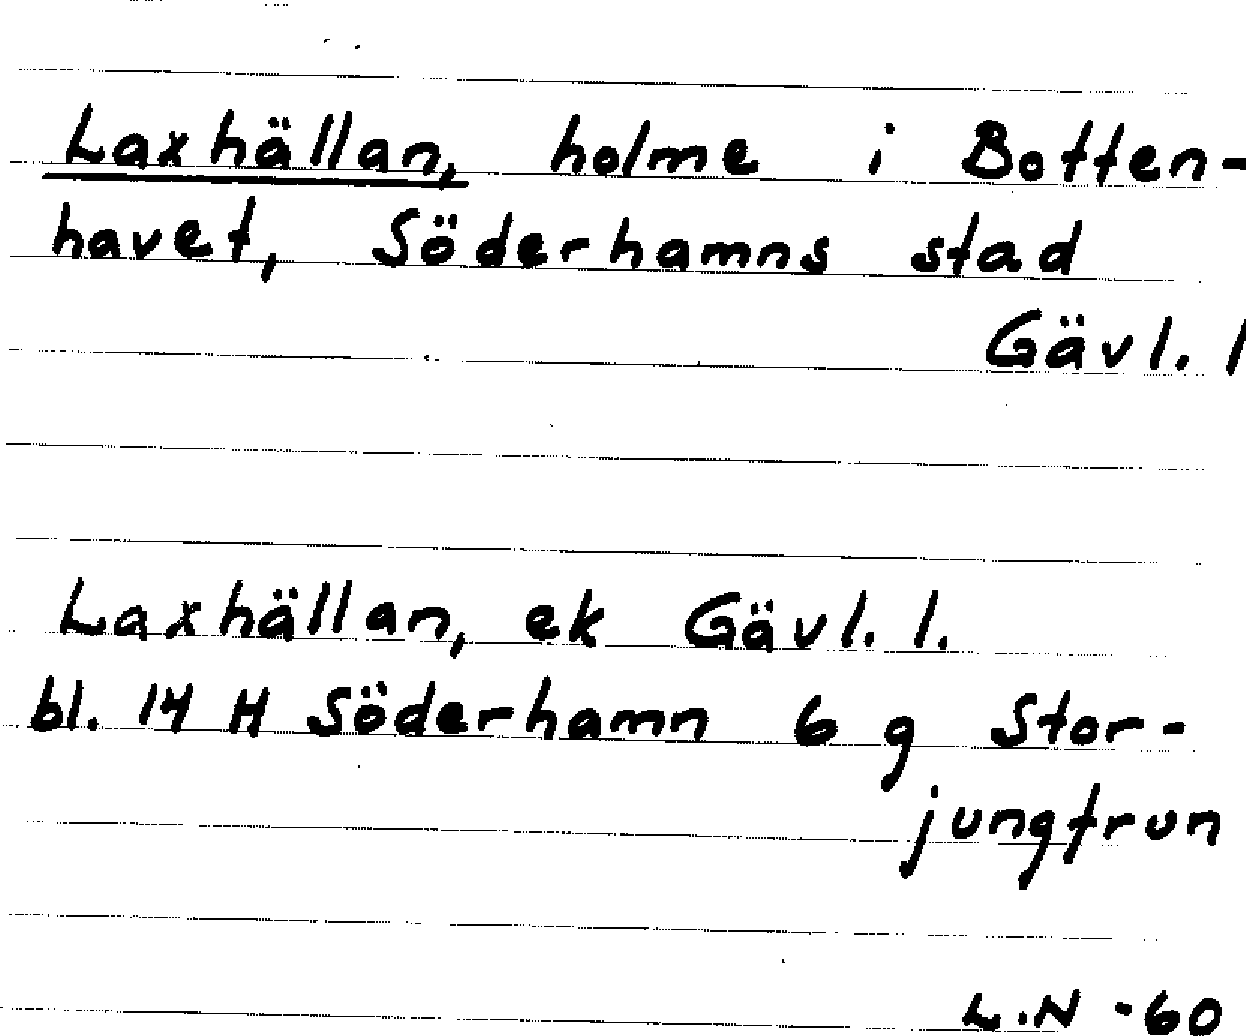 Laxhällan, holme i Botten-
havet, Söderhamns stad
Gävl. l
Laxhällan, ek Gävl. l.
bl. 14 H Söderhamn 6 g Stor-
jungfrun
L.N -60